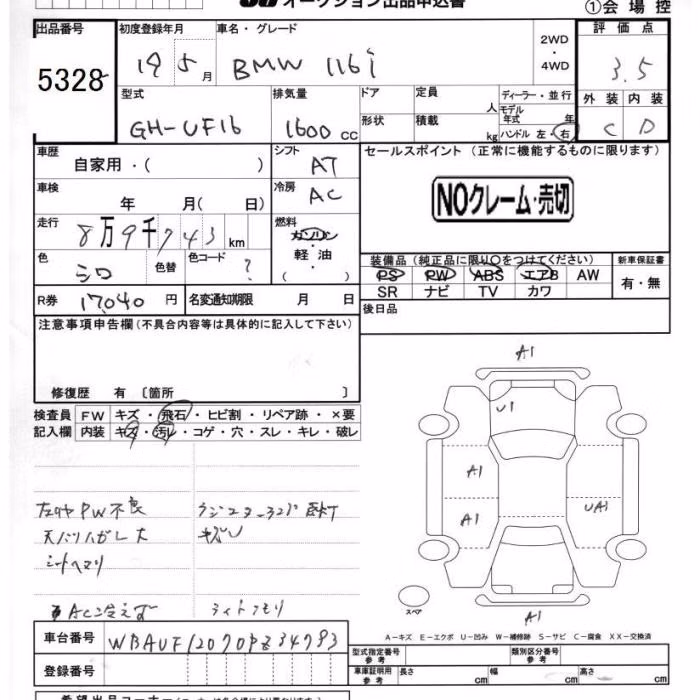 オークション出品申込書 ①会場控
出品番号 初度登録年月 車名・グレード 2WD・4WD 評価点
5328 19 5月 BMW 116i 3.5
型式 排気量 ドア 定員 人 ディーラー・並行 外装 内装
GH-UF16 1600cc 形状 積載 kg モデル年式 年 ハンドル 左・右 C D
車歴 シフト セールスポイント (正常に機能するものに限ります)
自家用・( ) AT
車検 冷房 NOクレーム・売切
年 月( 日) AC
走行 燃料
8万9千743km ガソリン
色 色替 色コード 軽油 装備品 (純正品に限り〇をつけてください) 新車保証書
シロ ? ( ) PS PW ABS エアB AW 有・無
SR ナビ TV カワ
R券 17,040円 名変通知期限 月 日 後日品
注意事項申告欄 (不具合内容等は具体的に記入して下さい)
修復歴 有 〔箇所 〕
検査員 FW キズ・飛石・ヒビ割・リペア跡・×要
記入欄 内装 キズ・汚レ・コゲ・穴・スレ・キレ・破レ
A1
U1
A1
A1 UA1
A1
PW不良
天バリハガレ大 キズ
シートヘタリ
AC冷えず ライトクモリ
スペア
A-キズ E-エクボ U-凹み W-補修跡 S-サビ C-腐食 XX-交換済
車台番号 WBAUF12070PZ34793
登録番号
型式指定番号 参考 類別区分番号 参考
車庫証明用 参考 長さ cm 幅 cm 高さ cm